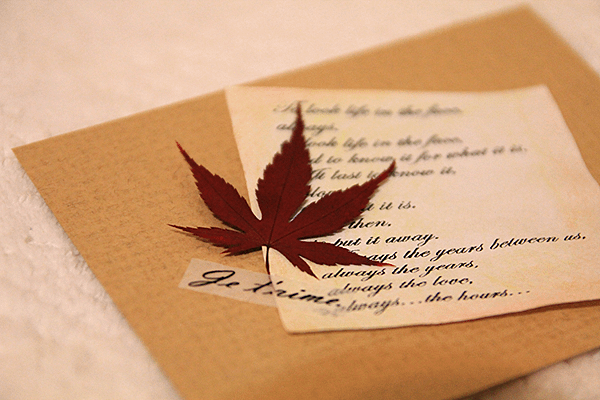 To look life in the face,
always,
look life in the face,
to know it for what it is.
last to know it,
it is.
then,
put it away.
the years between us,
always the years,
always the love,
always...the hours...
Je t'aime